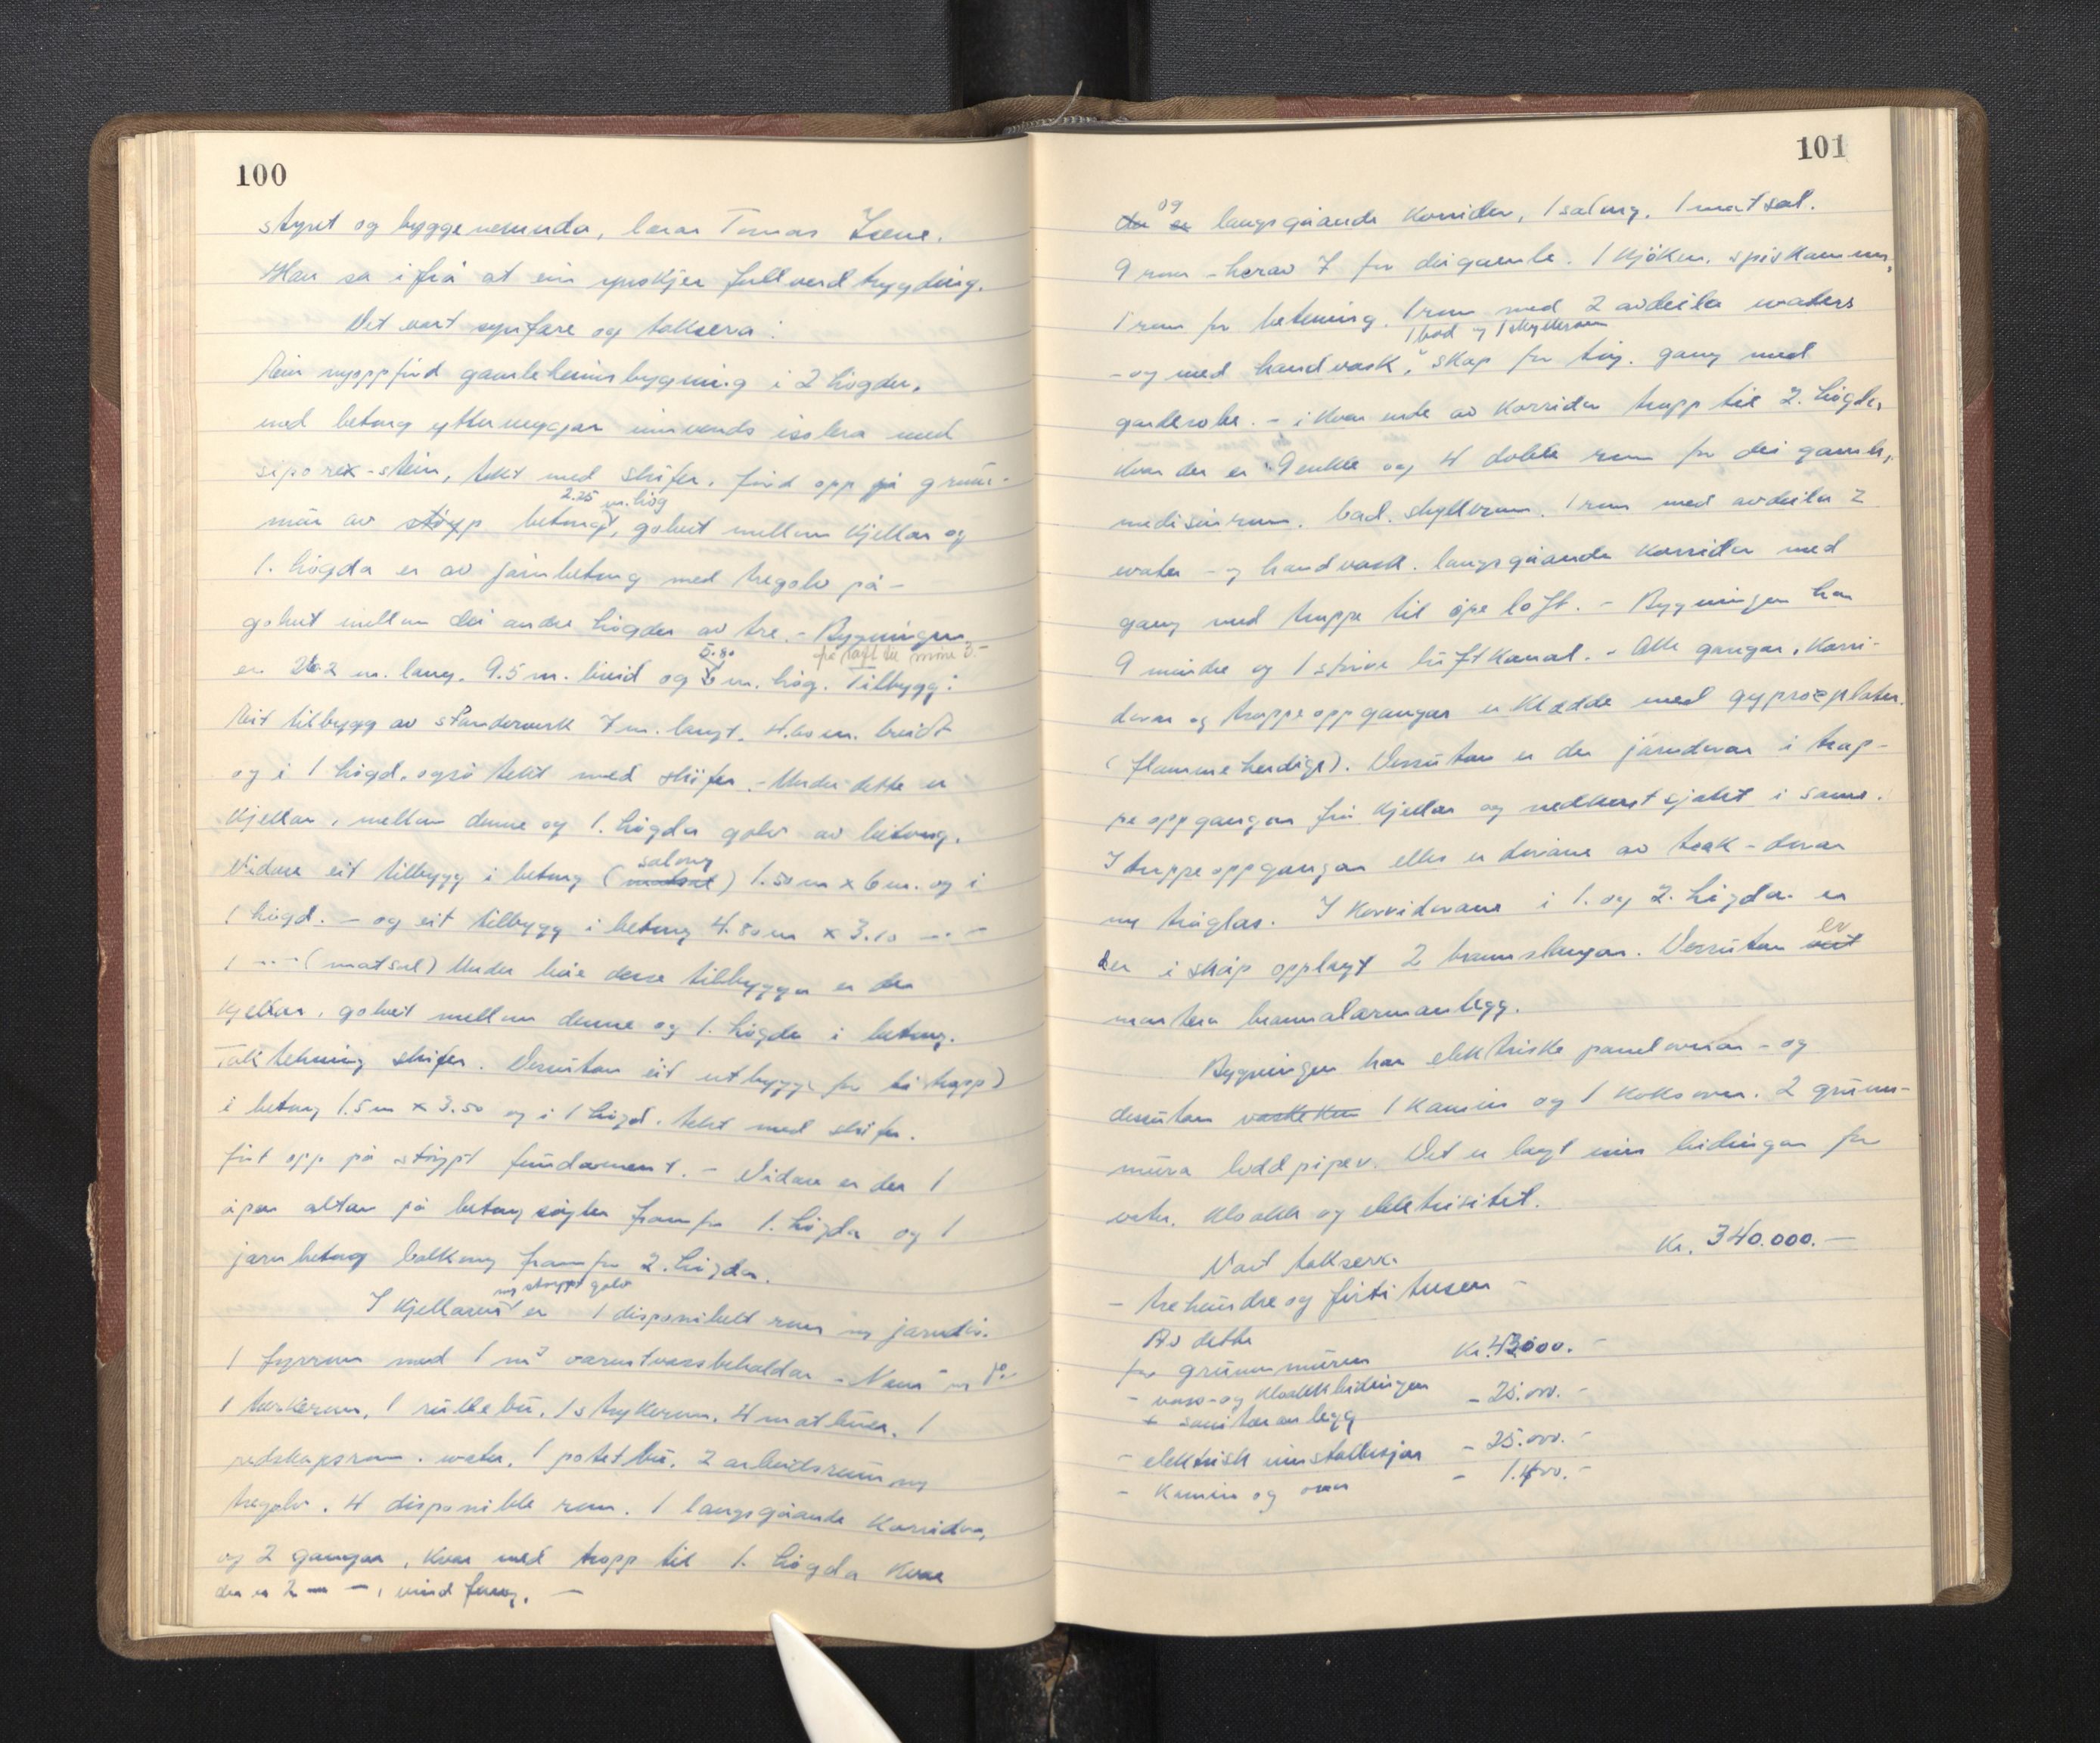 100
styret og byggenemnda, lærar Tomas
Han sa ifrå at ein ynskjer fullverdtrygding.
Det vart synfare og taksera:
Ein nyoppförd gamleheimsbygning i 2 högder,
med betong yttervegger innvends isolera med
siporex-stein, tekt med skifer, förd opp på grunn-
mur av støyp betong, 2.25 m. hög golvet mellom kjellar og
1. högda er av jarnbetong med tregolv på -
golvet mellom dei andre högder av tre. - Bygningen
er 26.2 m. lang, 9.5 m. breid og 5.80 m. hög. Tilbygg:
frå loft til möne 3.-
Eit tilbygg av standerverk 7 m. langt, 4.60 m. breidt
og i 1 högd, også tekt med skifer. - Under dette er
kjellar, mellom denne og 1. högda golv av betong.
Vidare eit tilbygg i betong (matsal salong) 1.50 m x 6 m. og i
1 högd. - og eit tilbygg i betong 4.80 m x 3.10 - " -
1 - " - (matsal) Under desse tilbygga er der
kjellar, golvet mellom denne og 1. högda i betong.
Taktekning skifer. Dessutan eit utbygg for
i betong 1.5 m x 3.50 og i 1 högd, tekt med skifer.
fört opp på støypt fundament. - Vidare er der 1
open altan på betong söyler framfor 1. högda og 1
jarnbetong balkong framfor 2. högda.
I kjellaren m støypt golv er 1 disponibelt rom m jarndör.
1 fyrrom med 1 m³ varmtvassbehaldar
1 törkerom, 1 rullebu, 1 strykerom, 4 matbuer, 1
redskapsrom, water, 1 potetbu, 2 arbeidsrum m
tregolv, 4 disponible rom, 1 langsgåande korridor,
og 2 gangar, kvar med tropp til 1. högda kvar
der er 2 - " -, vindfang. -
101
der er og langsgåande korridor, 1 salong, 1 matsal.
9 rom - herav 7 for dei gamle. 1 kjöken, spiskammers,
1 rom for betening. 1 rom med 2 avdeila waters
- og med handvask, 1 bad og 1 skyllerom skap for töy. gang med
garderobe. - i kvar ende av korridor tropp til 2. högda,
kvar der er 9 enkle og 4 doble rom for dei gamle,
medisinrom, bad, skyllerom, 1 rom med avdeila 2
water - og handvask, langsgåande korridor med
gang med troppe til ope loft. - Bygningen har
9 mindre og 1 större luftkanal. - Alle gangar, korri-
dorar og troppeoppgangar er kledde med gyprocplater
(flammeherdige). Dessutan er der jarndorar i trop-
peoppgangar frå kjellar og nedkast sjakt i same.
I troppeoppgangar elles er dörane av teak-dorar
m tråglas. I korridorane i 1. og 2. högda er
der i skåp opplagt 2 brannslangar. Dessutan vert er
montera brannalarmanlegg.
Bygningen har elektriske panelomnar - og
dessutan 1 kamin og 1 koksomn. 2 grunn-
mura loddpiper. Det er lagt inn leidingar for
vatn, kloakk og elektrisitet.
Vart taksera Kr. 340.000.-
- trehundre og förti tusen -
Av dette
for grunnmuren Kr. 43000.-
- vass- og kloakkleidingen
+ sanitæranlegg - 25.000.-
- elektrisk innstallasjon - 25.000.-
- kamin og omn